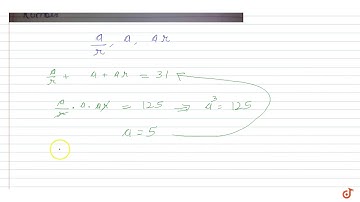 a/r, a, ar
a/r + a + ar = 31
a/r · a · ar = 125 ⇒ a³ = 125
a = 5